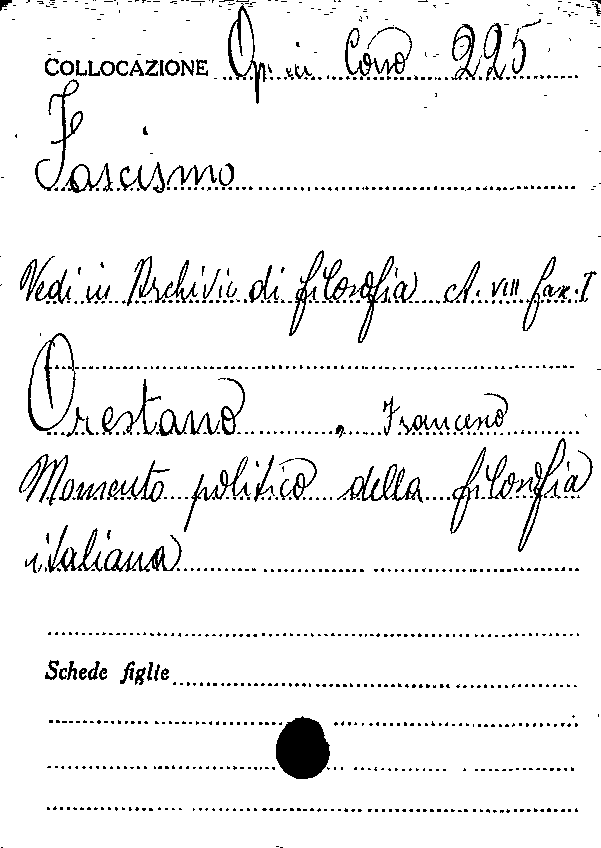 COLLOCAZIONE Op. in Corso 225
Fascismo
Vedi in Archivio di filosofia A. VIII fasc. I
Orestano, Francesco
Momento politico della filosofia
italiana
Schede figlie